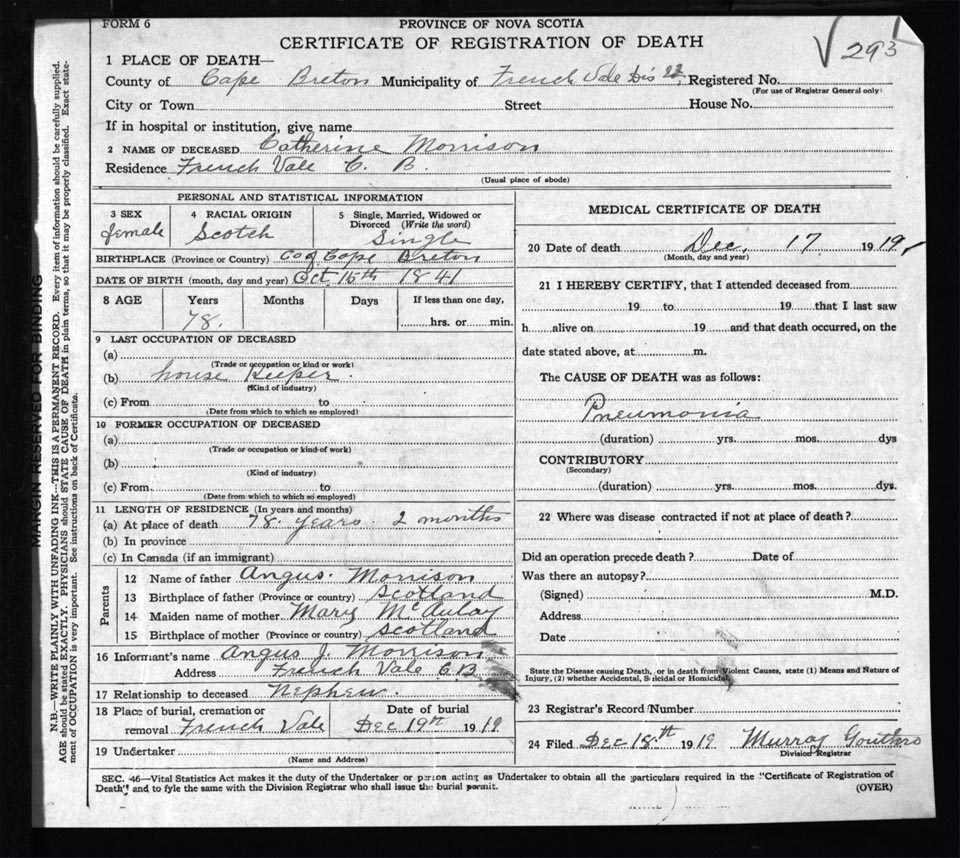 FORM 6
PROVINCE OF NOVA SCOTIA
CERTIFICATE OF REGISTRATION OF DEATH
293
1 PLACE OF DEATH—
County of Cape Breton Municipality of French Vale Dis 22 Registered No.
(For use of Registrar General only)
City or Town Street House No.
If in hospital or institution, give name
2 NAME OF DECEASED Catherine Morrison
Residence French Vale C. B.
(Usual place of abode)
PERSONAL AND STATISTICAL INFORMATION
3 SEX female
4 RACIAL ORIGIN Scotch
5 Single, Married, Widowed or Divorced (Write the word)
Single
BIRTHPLACE (Province or Country) Co of Cape Breton
DATE OF BIRTH (month, day and year) Oct 15th 1841
8 AGE Years Months Days If less than one day,
78. hrs. or min.
9 LAST OCCUPATION OF DECEASED
(a)
(Trade or occupation or kind or work)
(b) house keeper.
(Kind of industry)
(c) From to
(Date from which to which so employed)
10 FORMER OCCUPATION OF DECEASED
(a)
(Trade or occupation or kind of work)
(b)
(Kind of industry)
(c) From to
(Date from which to which so employed)
11 LENGTH OF RESIDENCE (In years and months)
(a) At place of death 78 years 2 months
(b) In province
(c) In Canada (if an immigrant)
Parents
12 Name of father Angus Morrison
13 Birthplace of father (Province or country) Scotland
14 Maiden name of mother Mary McAulay
15 Birthplace of mother (Province or country) Scotland
16 Informant's name Angus J. Morrison
Address French Vale C.B
17 Relationship to deceased Nephew.
18 Place of burial, cremation or removal French Vale
Date of burial Dec 19th 1919
19 Undertaker
(Name and Address)
MEDICAL CERTIFICATE OF DEATH
20 Date of death Dec, 17 1919,
(Month, day and year)
21 I HEREBY CERTIFY, that I attended deceased from
19 to 19 that I last saw
h alive on 19 and that death occurred, on the
date stated above, at m.
The CAUSE OF DEATH was as follows:
Pneumonia
(duration) yrs. mos. dys
CONTRIBUTORY
(Secondary)
(duration) yrs. mos. dys.
22 Where was disease contracted if not at place of death?
Did an operation precede death? Date of
Was there an autopsy?
(Signed) M.D.
Address
Date
State the Disease causing Death, or in death from Violent Causes, state (1) Means and Nature of
Injury, (2) whether Accidental, Suicidal or Homicidal
23 Registrar's Record Number
24 Filed Dec 18th 1919 Murray
Division Registrar
SEC. 46—Vital Statistics Act makes it the duty of the Undertaker or person acting as Undertaker to obtain all the particulars required in the "Certificate of Registration of
Death" and to fyle the same with the Division Registrar who shall issue the burial permit.
(OVER)
MARGIN RESERVED FOR BINDING
N.B.—WRITE PLAINLY WITH UNFADING INK—THIS IS A PERMANENT RECORD. Every item of information should be carefully supplied.
AGE should be stated EXACTLY. PHYSICIANS should STATE CAUSE OF DEATH in plain terms, so that it may be properly classified. Exact state-
ment of OCCUPATION is very important. See instructions on back of Certificate.